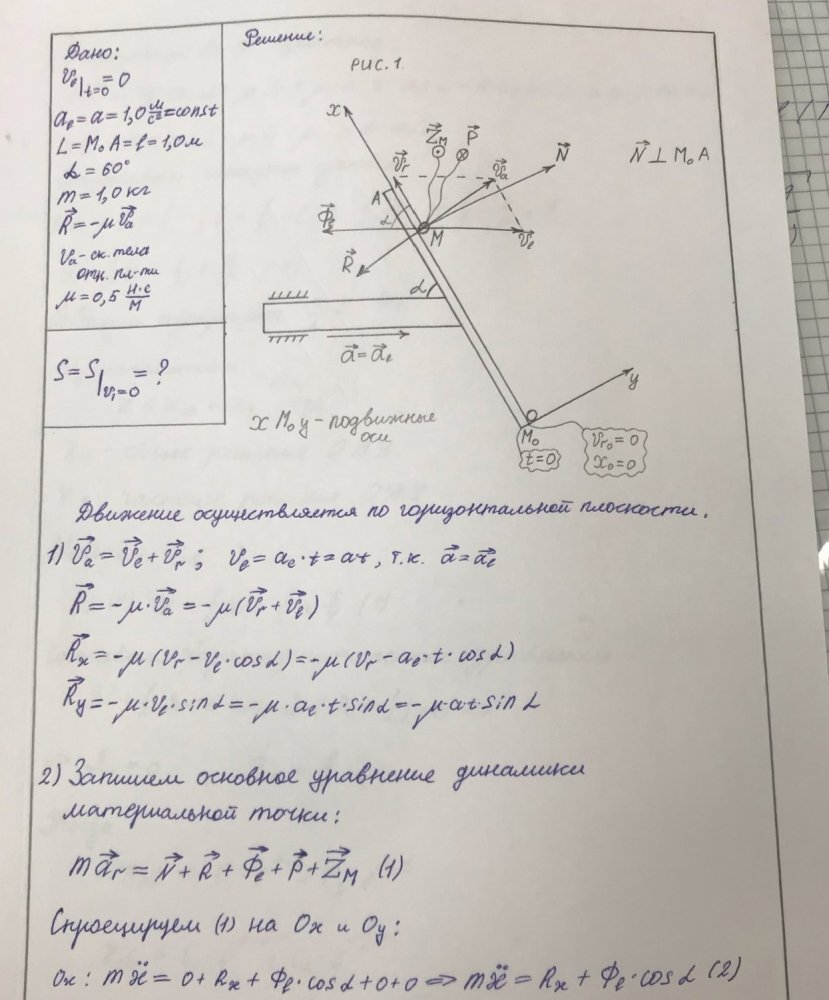 Дано:
v_e|_{t=0} = 0
a_e = a = 1,0 м/с² = const
L = M₀A = ℓ = 1,0 м
α = 60°
m = 1,0 кг
R⃗ = -μv⃗_a
v_a - ск. тела
отн. пл-ти
μ = 0,5 Н·с/м
S = S|_{v_i=0} = ?
Решение:
РИС. 1.
x
Z⃗_м
P⃗
v⃗_r
v⃗_a
N⃗
N⃗ ⊥ M₀A
A
α
Φ⃗_e
M
v⃗_e
R⃗
α
a⃗ = a⃗_e
y
O
M₀
t=0
v_{r0} = 0
x₀ = 0
x M₀ y - подвижные
оси
Движение осуществляется по горизонтальной плоскости.
1) v⃗_a = v⃗_e + v⃗_r ; v_e = a_e·t = at, т.к. a⃗ = a⃗_e
R⃗ = -μ·v⃗_a = -μ(v⃗_r + v⃗_e)
R⃗_x = -μ(v_r - v_e·cosα) = -μ(v_r - a_e·t·cosα)
R⃗_y = -μ·v_e·sinα = -μ·a_e·t·sinα = -μ·at·sinα
2) Запишем основное уравнение динамики
материальной точки:
ma⃗_r = N⃗ + R⃗ + Φ⃗_e + P⃗ + Z⃗_M (1)
Спроецируем (1) на Ox и Oy:
Ox: mẍ = 0 + R_x + Φ_e·cosα + 0 + 0 => mẍ = R_x + Φ_e·cosα (2)